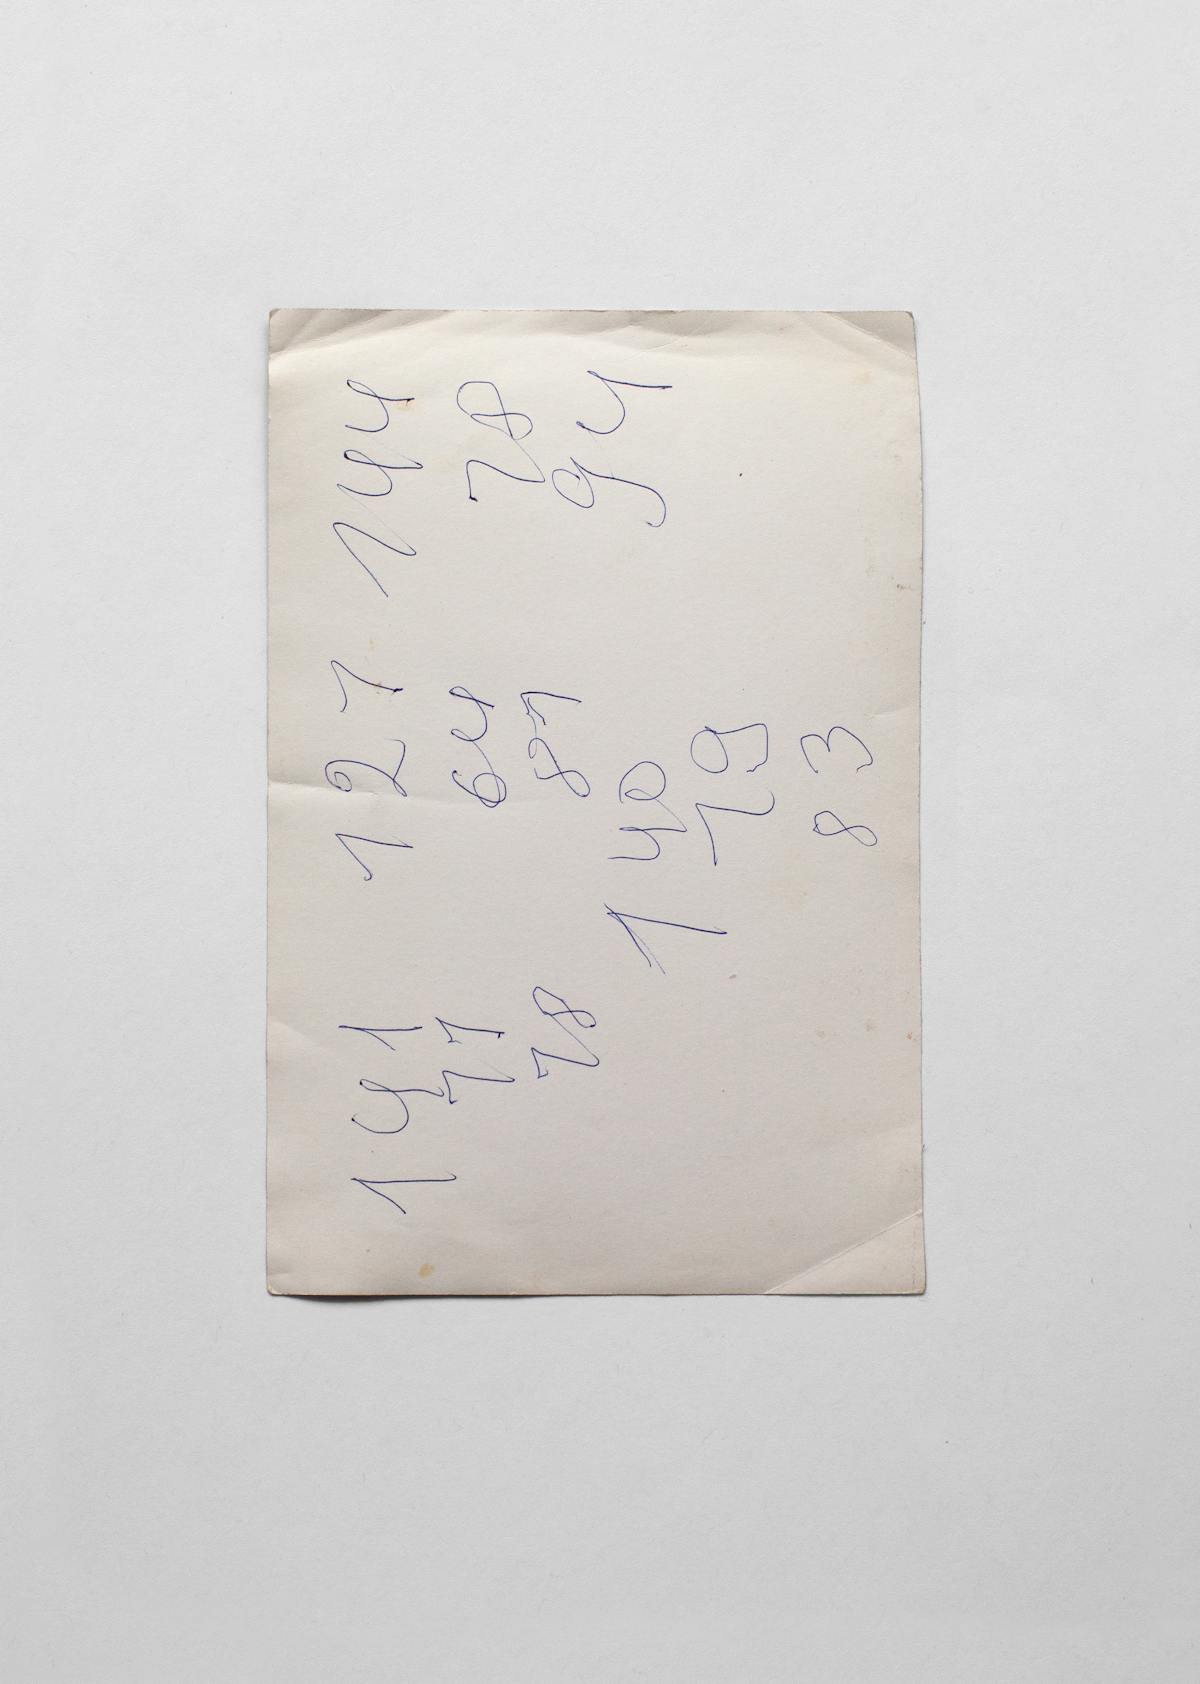 141 127 144
77 64 78
78 87 94
140
79
83